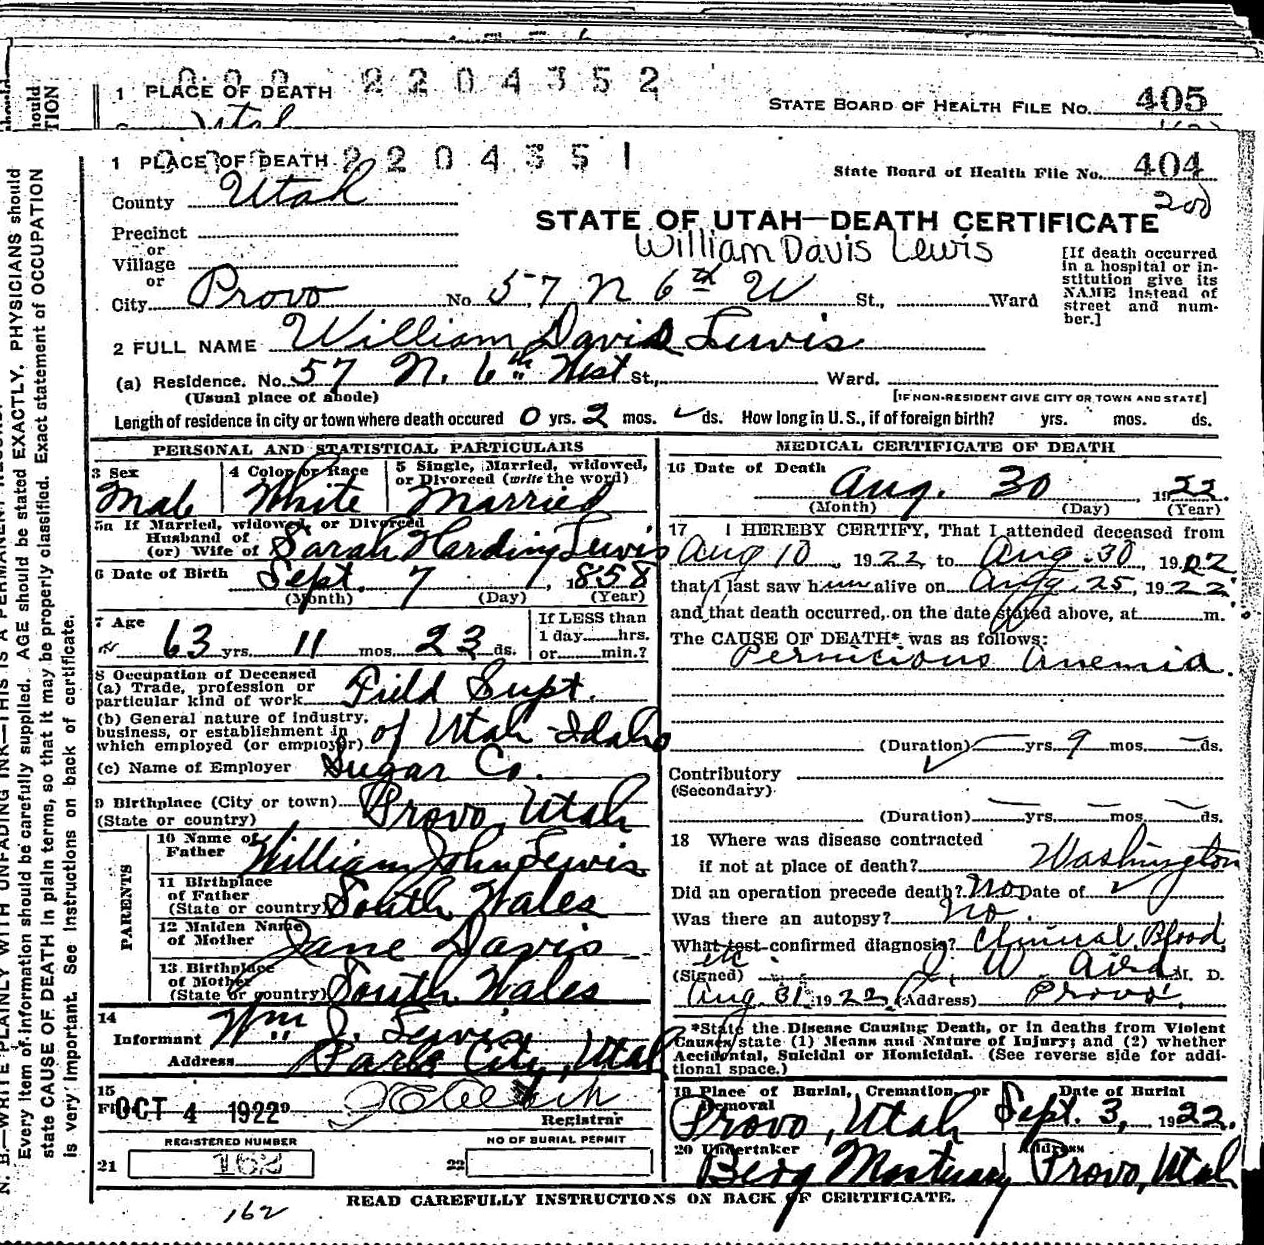 2204352
1 PLACE OF DEATH
STATE BOARD OF HEALTH FILE NO. 405
Utah
1 PLACE OF DEATH 2204351
State Board of Health File No. 404
County Utah
200
STATE OF UTAH—DEATH CERTIFICATE
Precinct
or
Village
or
William Davis Lewis
[If death occurred in a hospital or institution give its NAME instead of street and number.]
City Provo No. 57 N 6th W St., Ward
2 FULL NAME William Davis Lewis
(a) Residence. No. 57 N. 6th West St., Ward.
(Usual place of abode)
[IF NON-RESIDENT GIVE CITY OR TOWN AND STATE]
Length of residence in city or town where death occured 0 yrs. 2 mos. ds. How long in U. S., if of foreign birth? yrs. mos. ds.
PERSONAL AND STATISTICAL PARTICULARS
3 Sex 4 Color or Race 5 Single, Married, widowed, or Divorced (write the word)
Male White Married
5a If Married, widowed, or Divorced
Husband of
(or) Wife of Sarah Harding Lewis
6 Date of Birth Sept. 7, 1858
(Month) (Day) (Year)
7 Age 63 yrs. 11 mos. 23 ds.
If LESS than
1 day......hrs.
or......min.?
8 Occupation of Deceased
(a) Trade, profession or particular kind of work Field Supt.
(b) General nature of industry, business, or establishment in which employed (or employer) of Utah-Idaho
(c) Name of Employer Sugar Co.
9 Birthplace (City or town) Provo, Utah
(State or country)
PARENTS
10 Name of Father William John Lewis
11 Birthplace of Father (State or country) South Wales
12 Maiden Name of Mother Jane Davis
13 Birthplace of Mother (State or country) South Wales
14
Informant Wm J. Lewis
Address Park City, Utah
15
OCT 4 1922
Registrar
REGISTERED NUMBER
NO OF BURIAL PERMIT
21 162
22
MEDICAL CERTIFICATE OF DEATH
16 Date of Death
Aug. 30, 1922.
(Month) (Day) (Year)
17 I HEREBY CERTIFY, That I attended deceased from
Aug 10, 1922 to Aug. 30, 1922
that I last saw him alive on Aug. 25, 1922
and that death occurred, on the date stated above, at m.
The CAUSE OF DEATH* was as follows:
Pernicious Anemia.
(Duration) yrs. 9 mos. ds.
Contributory
(Secondary)
(Duration) yrs. mos. ds.
18 Where was disease contracted
if not at place of death? Washington
Did an operation precede death? No Date of
Was there an autopsy? No.
What test confirmed diagnosis? Clinical, Blood,
etc
(Signed) J. W. Aird M. D.
Aug 31, 1922 (Address) Provo.
*State the Disease Causing Death, or in deaths from Violent Causes, state (1) Means and Nature of Injury; and (2) whether Accidental, Suicidal or Homicidal. (See reverse side for additional space.)
19 Place of Burial, Cremation or Removal Date of Burial
Provo, Utah Sept. 3, 1922.
20 Undertaker Address
Berg Mortuary Provo, Utah
READ CAREFULLY INSTRUCTIONS ON BACK OF CERTIFICATE.
162
N. B.—WRITE PLAINLY WITH UNFADING INK—THIS IS A PERMANENT RECORD.
Every item of information should be carefully supplied. AGE should be stated EXACTLY. PHYSICIANS should
state CAUSE OF DEATH in plain terms, so that it may be properly classified. Exact statement of OCCUPATION
is very important. See instructions on back of certificate.